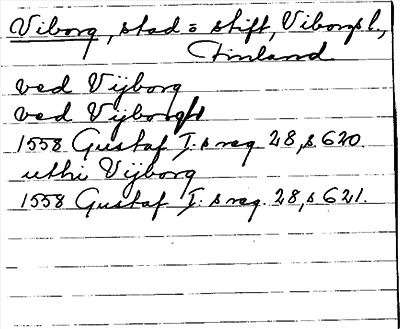 Viborg, stad o stift, Viborgs l.,
Finland
ved Vijborg
ved Vijborgh
1558 Gustaf I:s reg. 28, s. 620.
uthi Vijborg
1558 Gustaf I:s reg. 28, s 621.